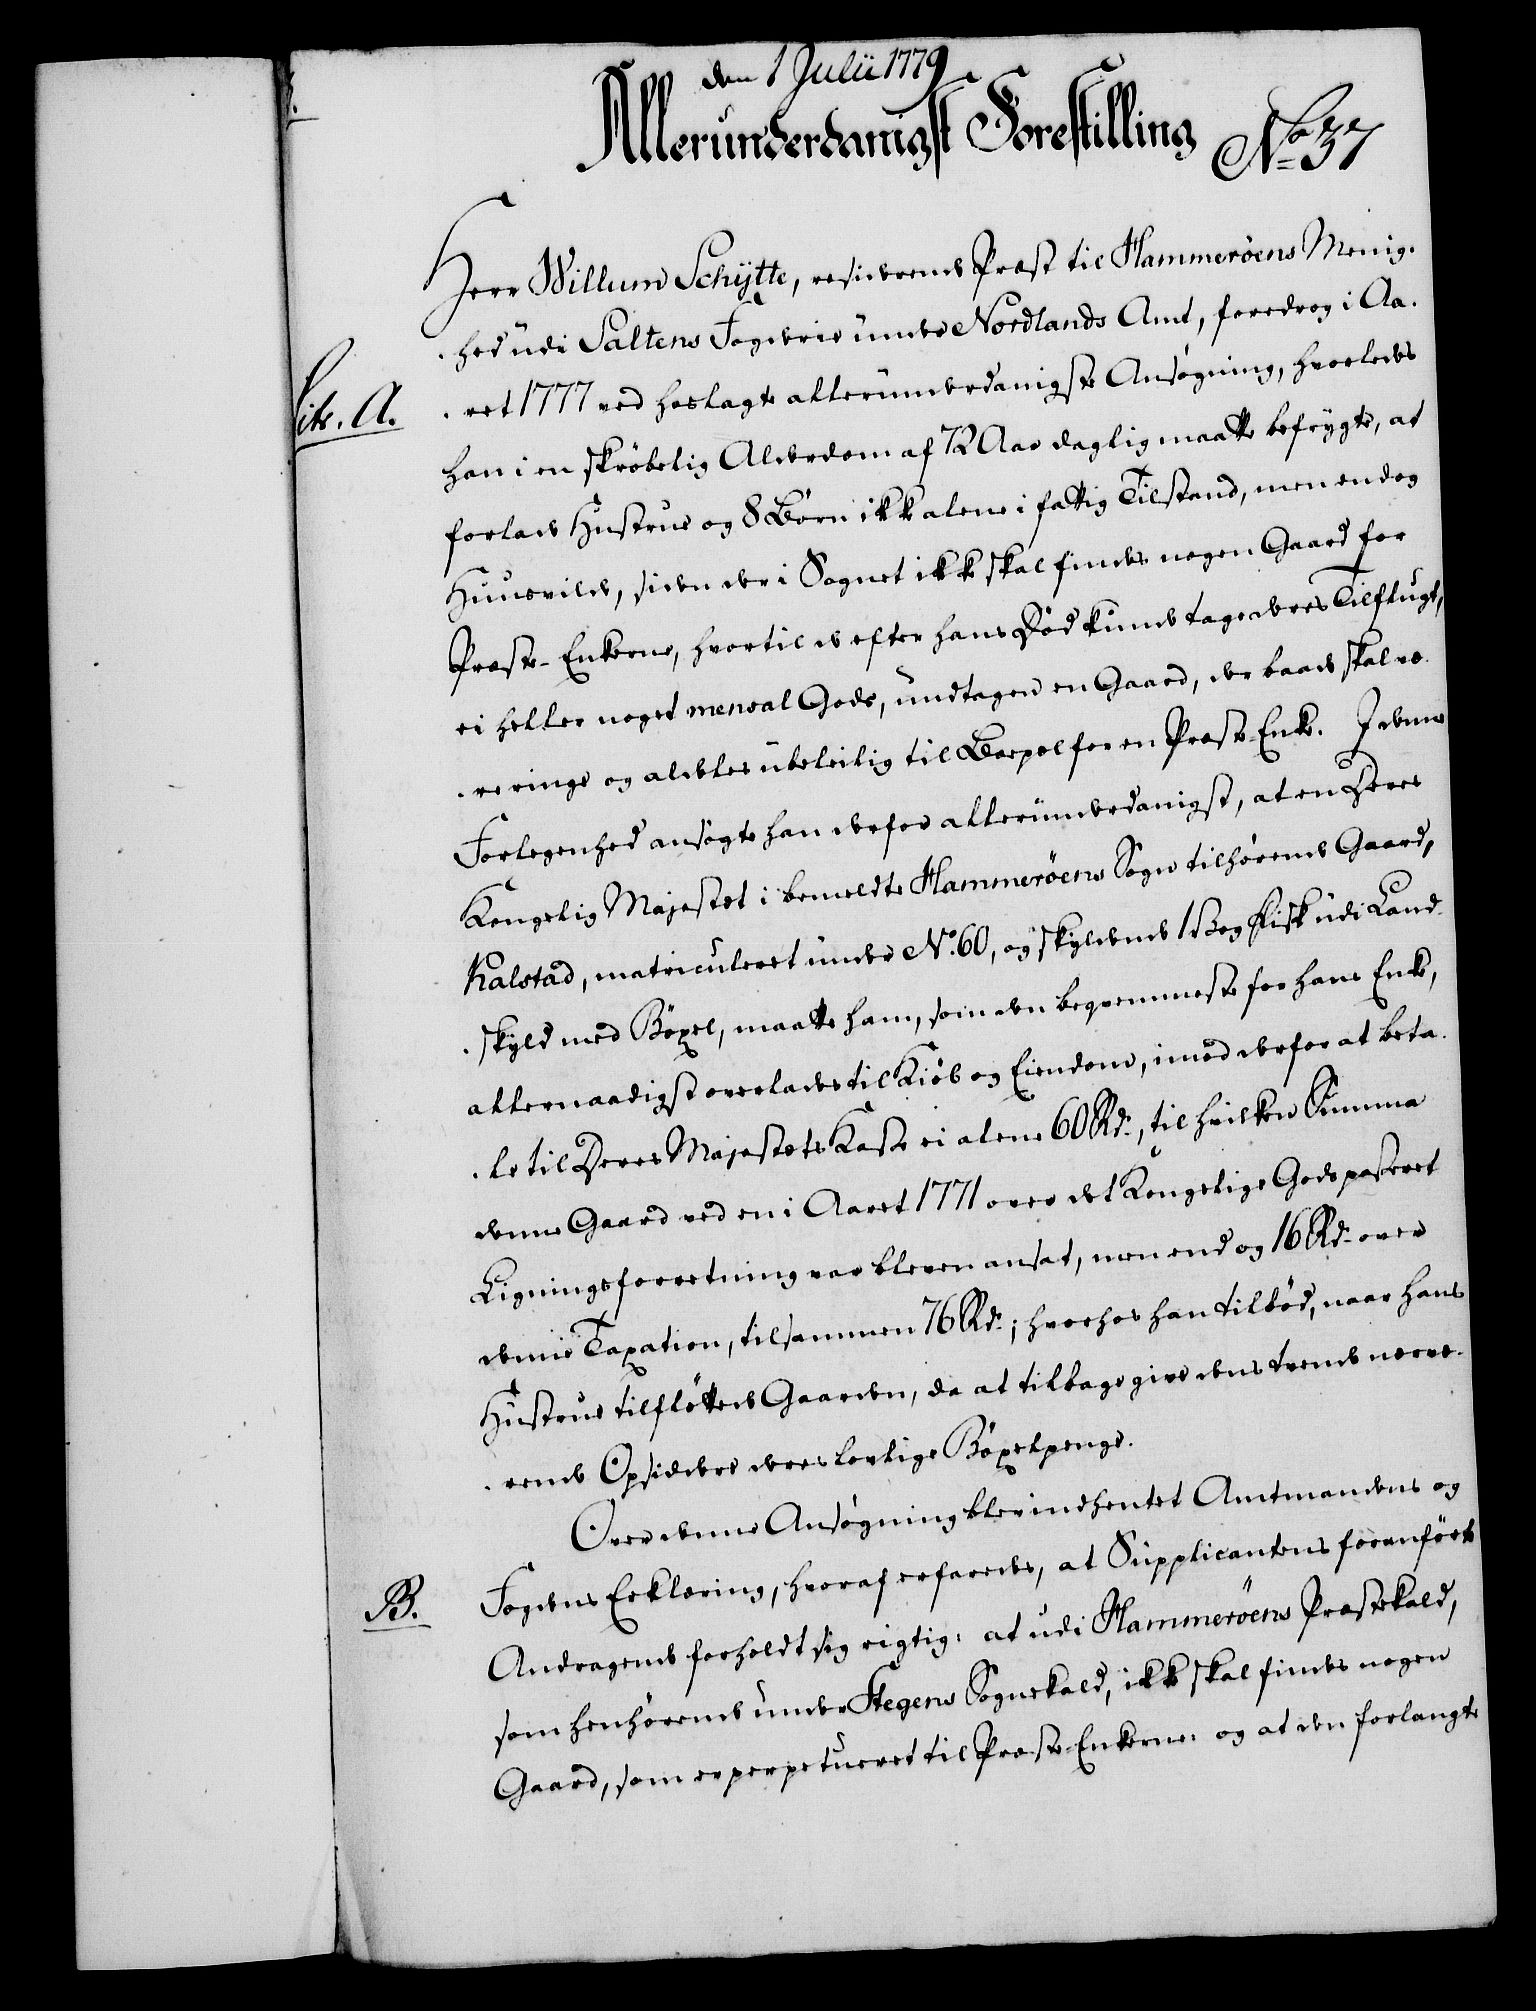 den 1 Julii 1779
Allerunderdanigst Forestilling No 37
Herr Willum Schytte, residerende Præst til Hammerøens Menig-
-hed udi Saltens Fogderie under Nordlands Amt, foredrog i Aa-
Litr. A.
-ret 1777 ved hoslagte allerunderdanigste Ansøgning, hvorledes
han i en skrøbelig Alderdom af 72 Aar daglig maatte befrygte, at
forlade Hustrue og 8 Børn ikke alene i fattig Tilstand, men endog
Huusvilde, siden der i Sognet ikke skal findes nogen Gaard for
Præste-Enkerne, hvortil de efter hans Død kunde tage deres Tilflugt,
ei heller noget mensal Gods, undtagen en Gaard, der baade skal væ-
-re ringe og aldeles ubeleilig til Boepæl for en Præste-Enke. I denne
Forlegenhed ansøgte han derfor allerunderdanigst, at en Deres
Kongelig Majestæt i bemeldte Hammerøens Sogn tilhørende Gaard,
Kalstad, matriculeret under No. 60, og skyldende 1 Vog Fisk udi Land-
-skyld med Böxel, maatte ham, som den beqvemmeste for hans Enke,
allernaadigst overlades til Kiøb og Eiendom, imod derfor at beta-
-le til Deres Majestæts Kasse ei alene 60 Rd., til hvilken Summa
denne Gaard ved en i Aaret 1771 over det Kongelige Gods passeret
Ligningsforretning var bleven ansat, men end og 16 Rd. over
denne Taxation, tilsammen 76 Rd.; hvorhos han tilbød, naar hans
Hustrue tilfløttede Gaarden, da at tilbage give dens tvende nærvæ-
-rende Opsiddere deres lovlige Böxelpenge.
Over denne Ansøgning blev indhentet Amtmandens og
B.
Fogdens Erklæring, hvoraf erfaredes, at Supplicantens foranførte
Andragende forholdt sig rigtig: at udi Hammerøens Præstekald,
som henhørende under Stegens Sognekald, ikke skal findes nogen
Gaard, som er perpetueret til Præste-Enkerne: og at den forlangte